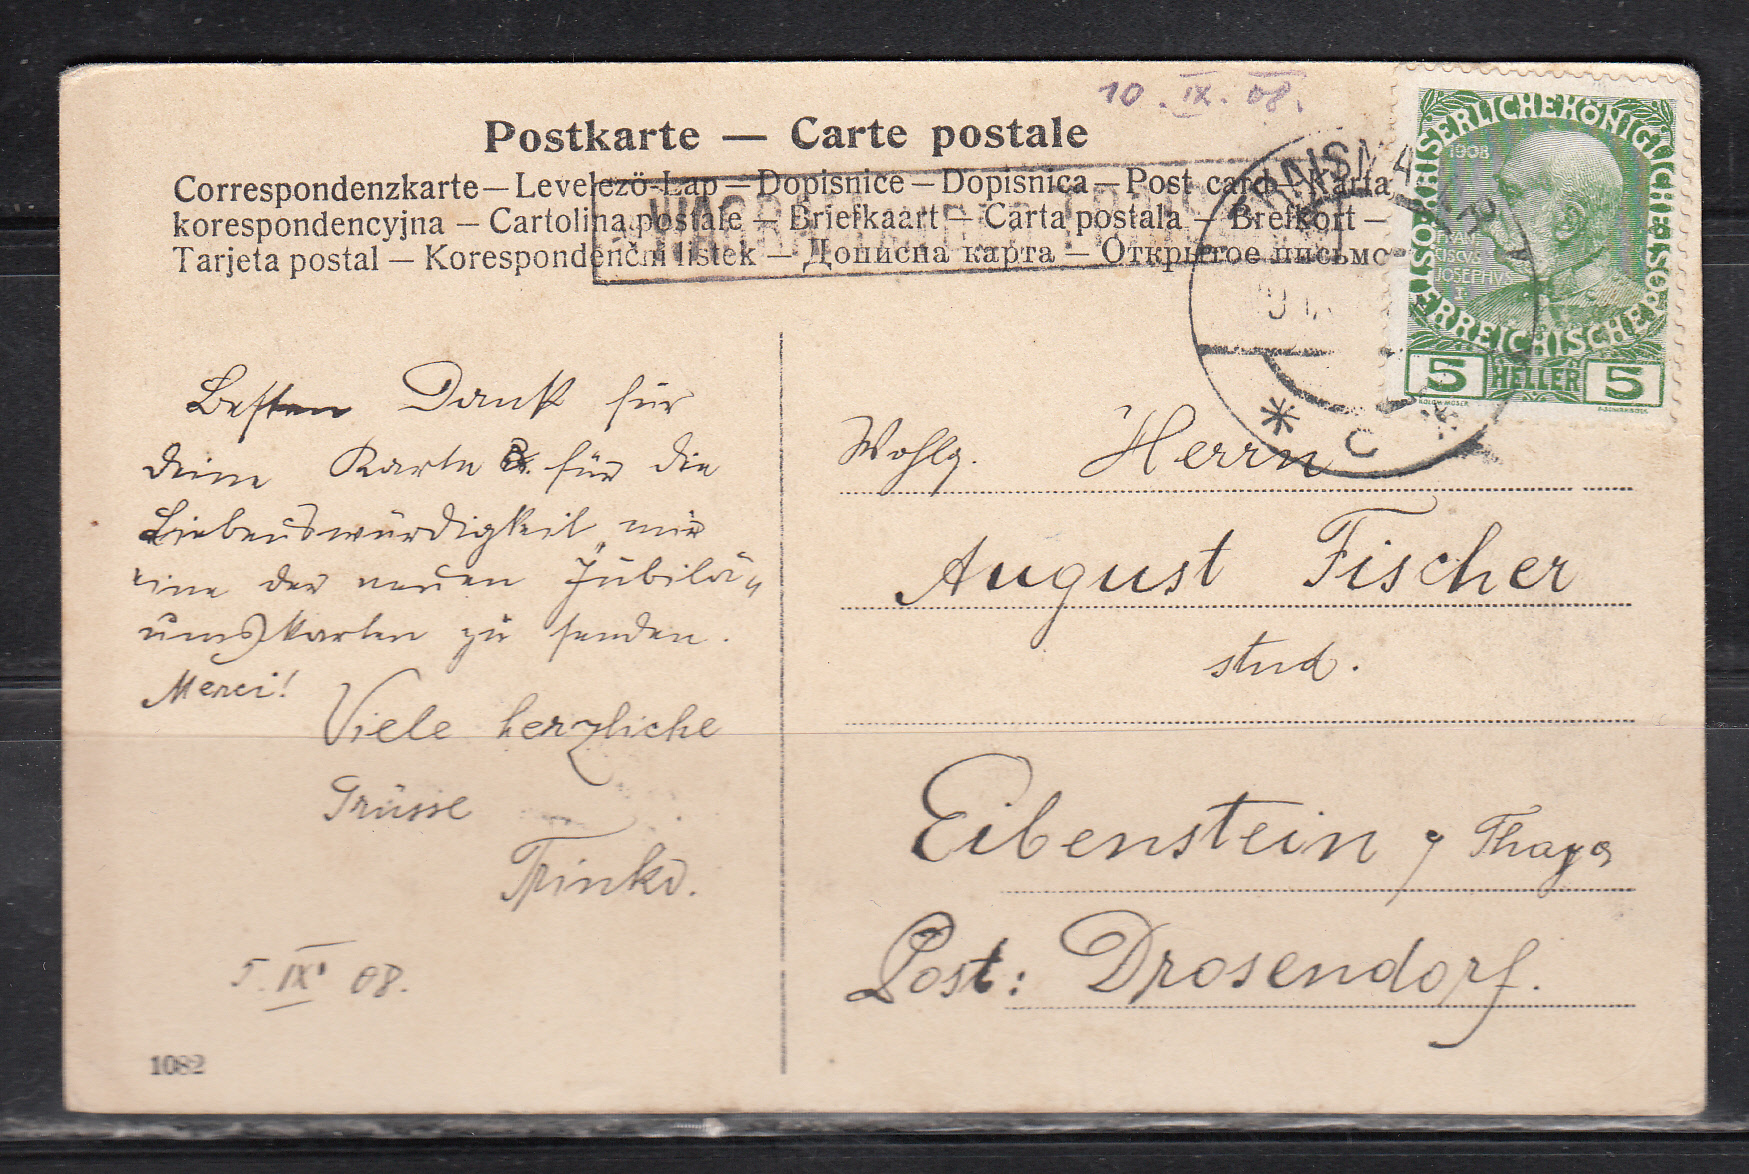 10. IX. 08.
Postkarte — Carte postale
Correspondenzkarte — Levelező-Lap — Dopisnice — Dopisnica — Post card — Karta
korespondencyjna — Cartolina postale — Briefkaart — Carta postala — Brefkort —
Tarjeta postal — Korespondenční listek — Дописна карта — Открытое письмо
KAISERLICHE KÖNIGLICHE ÖSTERREICHISCHE POST
1908
FRAN
CISCVS
JOSEPHVS
I
5 HELLER 5
* C *
Besten Dank für
deine Karte & für die
Liebenswürdigkeit, mir
eine der neuen Jubilä-
umskarten zu senden.
Merci!
Viele herzliche
Grüsse
5. IX. 08.
1082
Wohlg. Herrn
August Fischer
stud.
Eibenstein a/ Thaya
Post: Drosendorf.